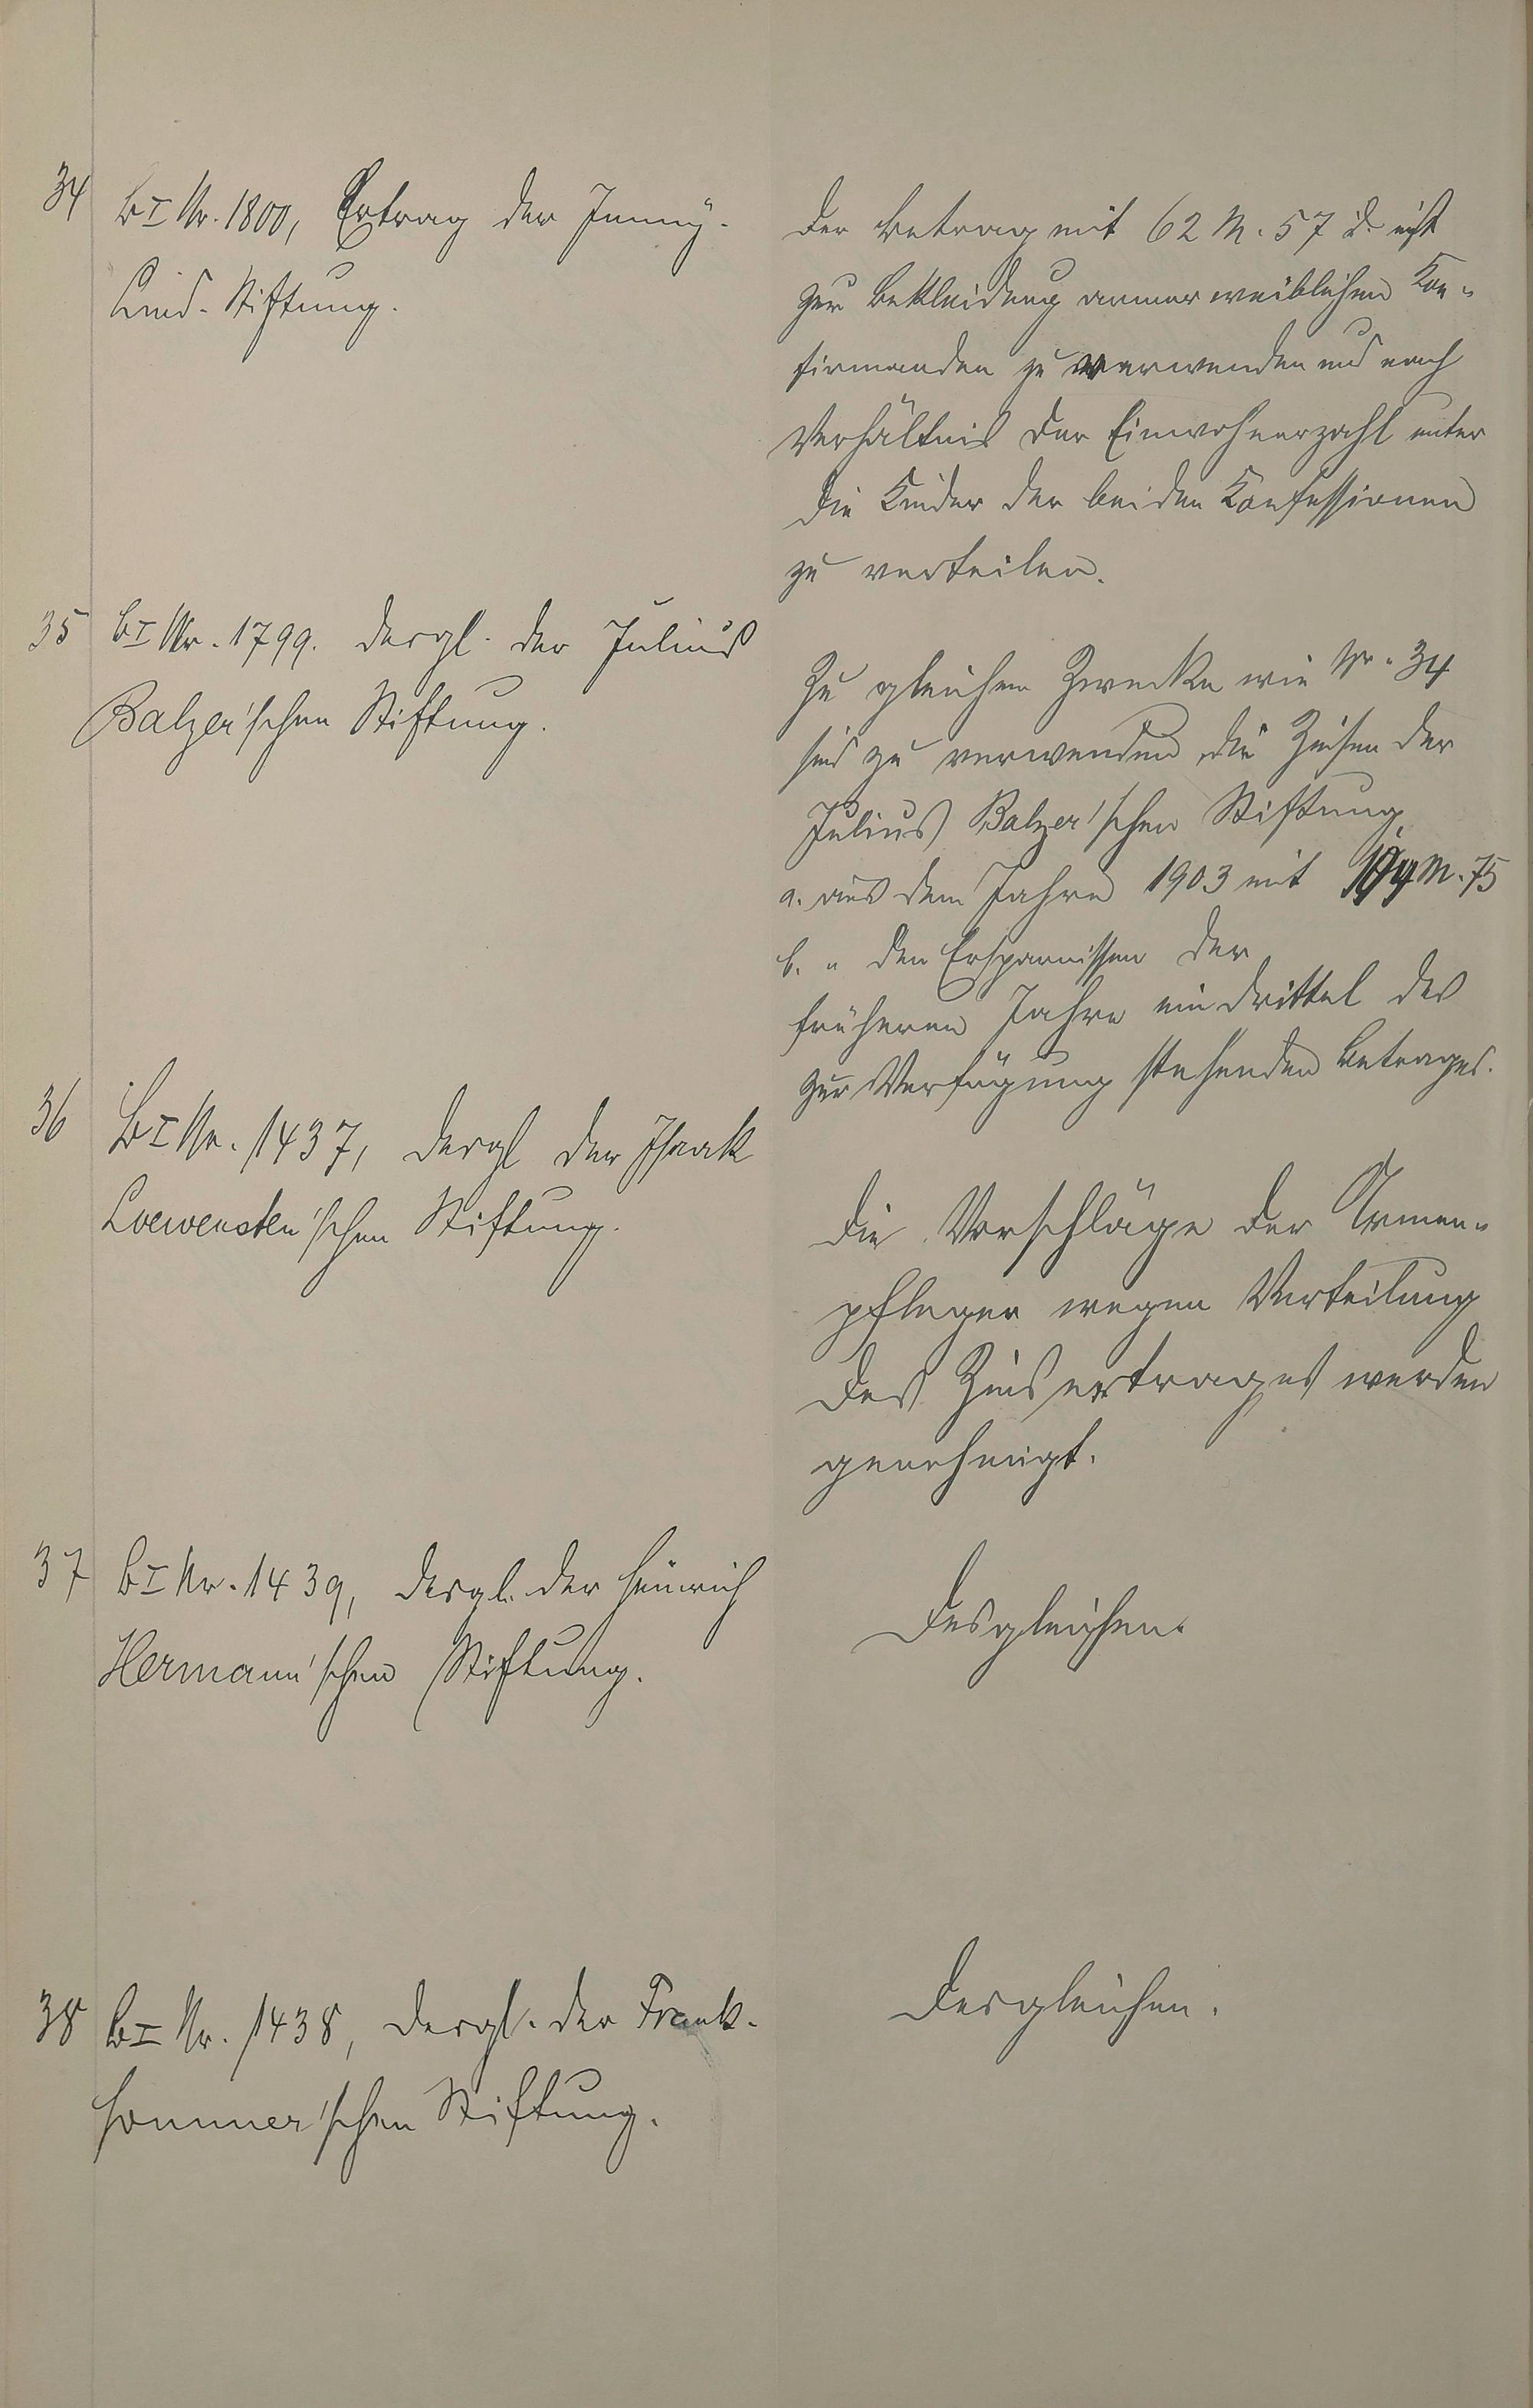 34 B I Nr. 1800, Ertrag der Jenny-
Lind-Stiftung.
Der Betrag mit 62 M. 57 d. ist
zur Bekleidung armer weiblichen Kon-
firmanden zu verwenden und nach
Verhältnis der Einwohnerzahl unter
die Kinder der beiden Konfessionen
zu verteilen.
35 B I Nr. 1799. desgl. der Julius
Balzer'schen Stiftung.
Zu gleichem Zwecke wie Nr. 34
sind zu verwenden die Zinsen der
Julius Balzer'schen Stiftung,
a. aus dem Jahre 1903 mit M. 75
b. " den Ersparnissen der
früheren Jahre ein Drittel des
zur Verfügung stehenden Betrages.
36 B I Nr. 1437, desgl der Isaak
Loewensten'schen Stiftung.
Die Vorschläge der Armen-
pfleger wegen Verteilung
des Zinsertrages werden
genehmigt.
37 B I Nr. 1439, desgl. der Heinrich
Hermann'schen Stiftung.
Desgleichen.
38 B I Nr. 1438, desgl. der Frank-
Sommer'schen Stiftung.
Desgleichen.